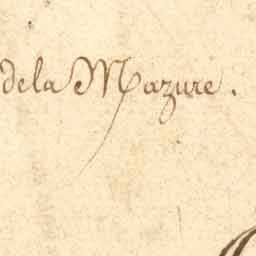 dela Mazure.